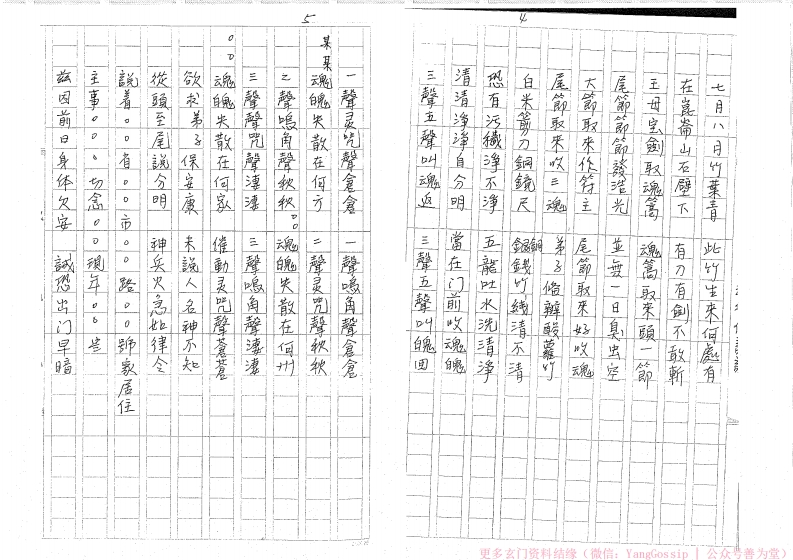 4
七月八月竹葉青 此竹生來何處有
在崑崙山石壁下 有刀有劍不敢斬
王母宝劍取魂篙 魂篙取來頭一節
尾節節節發浩光 並無一日臭虫空
大節取來作符主 尾節取來好收魂
尾節取來收三魂 弟子修辦酸蘿竹
白米剪刀銅鏡尺 銅錢竹綫清不清
恐有污穢淨不淨 五龍吐水洗清淨
清清淨淨自分明 當在门前收魂魄
三聲五聲叫魂返 三聲五聲叫魄回
5
一聲灵咒聲倉倉 一聲鳴角聲倉倉
某某魂魄失散在何方 二聲灵咒聲秧秧
之聲鳴角聲秧秧 。。魂魄失散在何州
三聲聲咒聲淒淒 三聲鳴角聲淒淒
。。魂魄失散在何家 催動灵咒聲蒼蒼
欲求弟子保安康 未說人名神不知
從頭至尾說分明 神兵火急如律令
說着。。。有。。市。。路。。號家居住
主事。。。切念。。。現年。。。些
茲因前日身体欠安 誠恐出门早暗
更多玄门资料结缘（微信：YangGossip | 公众号善为堂）